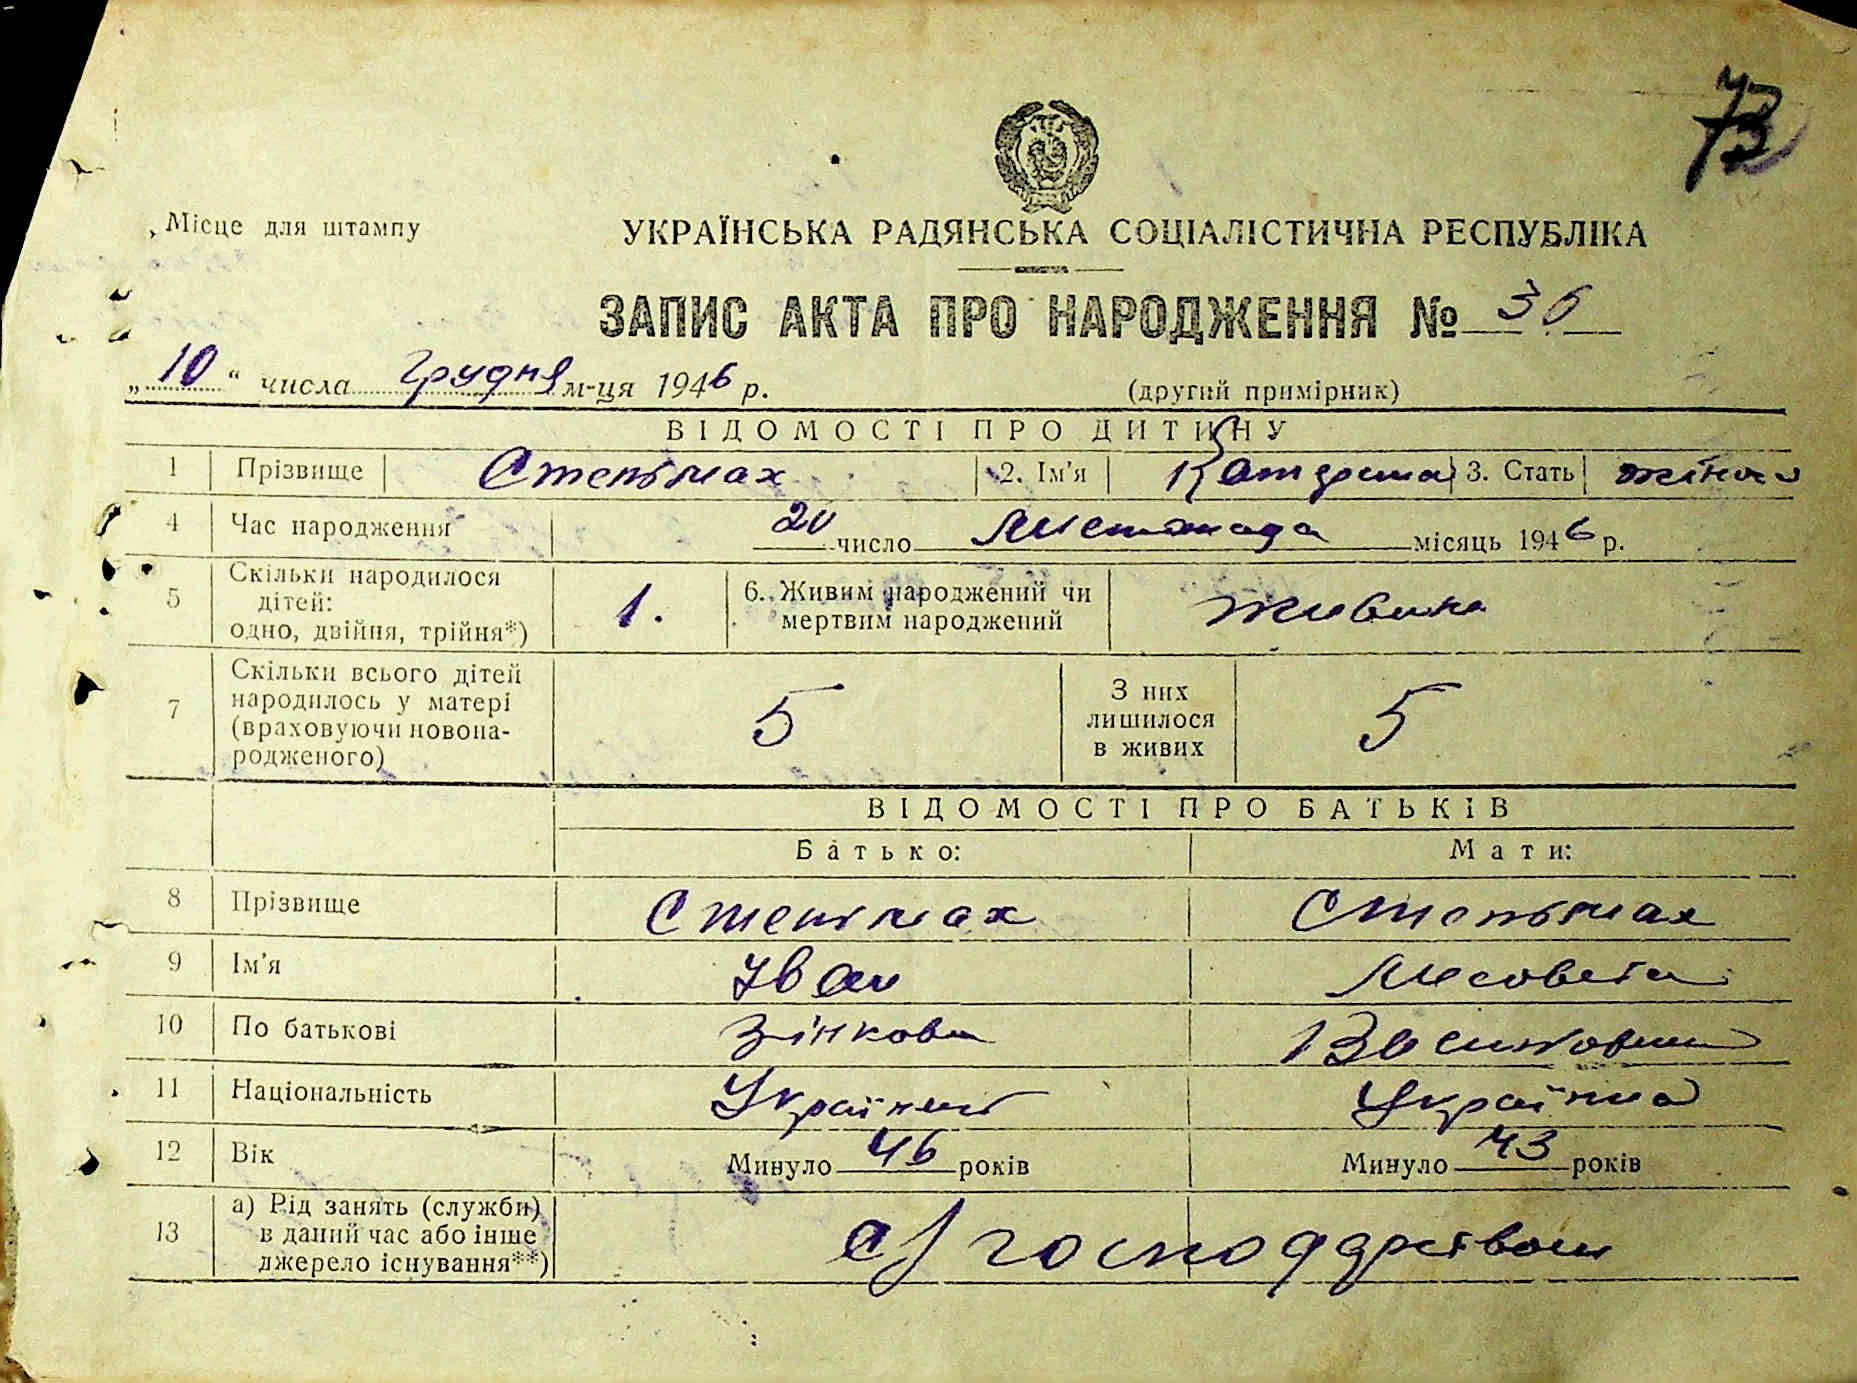 73
Місце для штампу
УКРАЇНСЬКА РАДЯНСЬКА СОЦІАЛІСТИЧНА РЕСПУБЛІКА
ЗАПИС АКТА ПРО НАРОДЖЕННЯ № 36
„10“ числа грудня м-ця 1946 р. (другий примірник)
ВІДОМОСТІ ПРО ДИТИНУ
1 Прізвище Стельмах 2. Ім'я Катерина 3. Стать жіноча
4 Час народження 20 число Листопада місяць 1946 р.
5 Скільки народилося дітей: одно, двійня, трійня*) 1. 6. Живим народжений чи мертвим народжений живим
7 Скільки всього дітей народилось у матері (враховуючи новонародженого) 5 З них лишилося в живих 5
ВІДОМОСТІ ПРО БАТЬКІВ
Батько: Мати:
8 Прізвище Стельмах Стельмах
9 Ім'я Іван
10 По батькові Зінкови
11 Національність Українець Українка
12 Вік Минуло 46 років Минуло 43 років
13 а) Рід занять (служби) в даний час або інше джерело існування**) а)